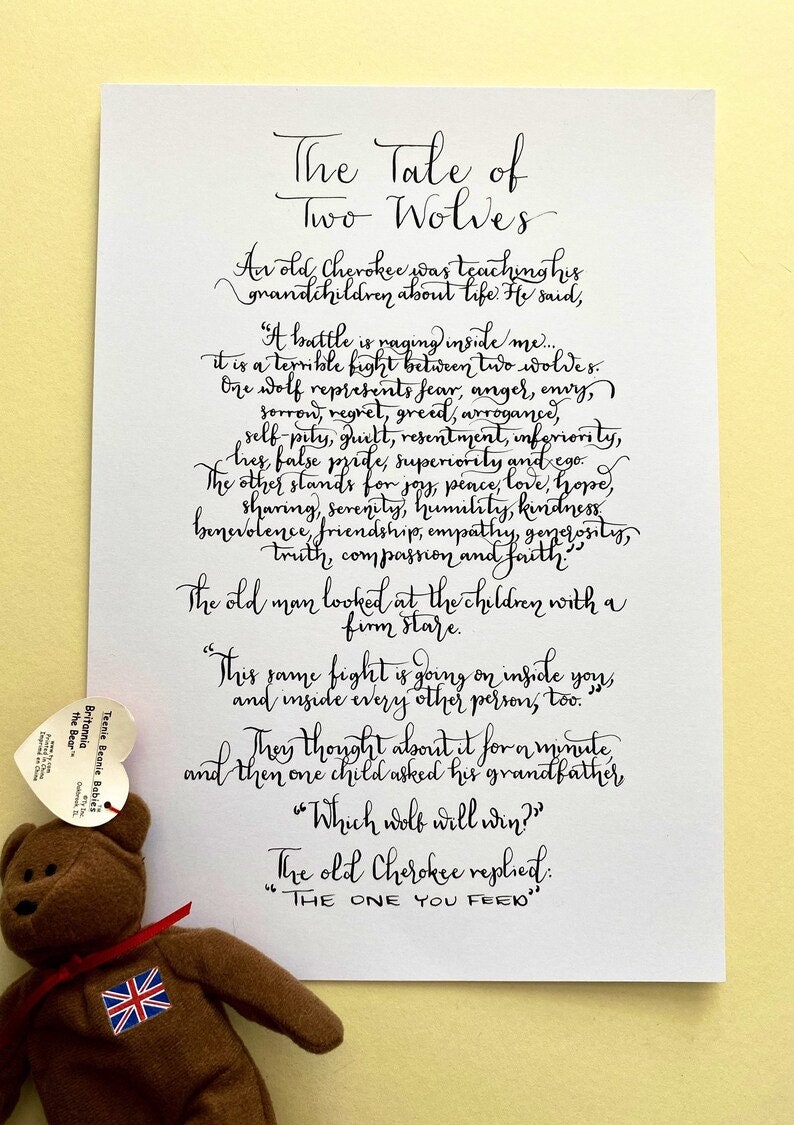 The Tale of
Two Wolves
An old Cherokee was teaching his
grandchildren about life. He said,
“A battle is raging inside me...
it is a terrible fight between two wolves.
One wolf represents fear, anger, envy,
sorrow, regret, greed, arrogance,
self-pity, guilt, resentment, inferiority,
lies, false pride, superiority and ego.
The other stands for joy, peace, love, hope,
sharing, serenity, humility, kindness,
benevolence, friendship, empathy, generosity,
truth, compassion and faith.”
The old man looked at the children with a
firm stare.
“This same fight is going on inside you,
and inside every other person, too.”
They thought about it for a minute,
and then one child asked his grandfather,
“Which wolf will win?”
The old Cherokee replied:
“THE ONE YOU FEED”
Teenie Beanie Babies™
Britannia
the Bear™
©Ty Inc.
Oakbrook, IL.
www.ty.com
Printed in China
Imprimé en China